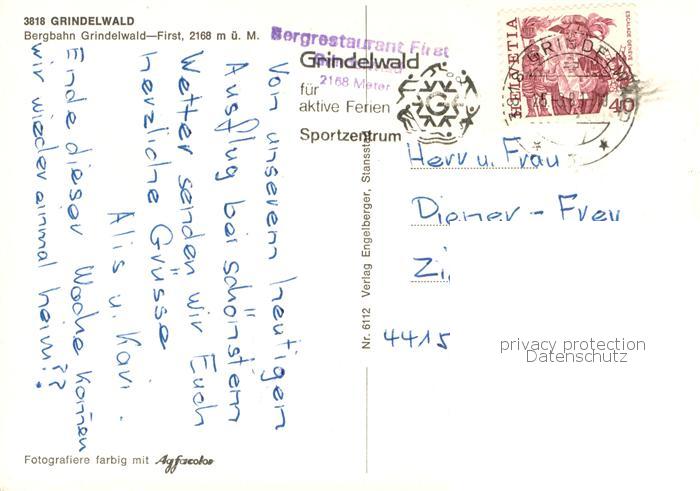 3818 GRINDELWALD
Bergbahn Grindelwald—First, 2168 m ü. M.
Bergrestaurant First
2168 Meter
Grindelwald
für
aktive Ferien
Sportzentrum
HELVETIA
ESCALADE GENÈVE
40
GRINDELW
Von unserem heutigen
Ausflug bei schönstem
Wetter senden wir Euch
herzliche Grüsse
Alis u. Kari.
Ende dieser Woche können
wir wieder einmal heim??
Nr. 6112 Verlag Engelberger, Stansstad
Herr u. Frau
Diener - Frey
Zi
4415
privacy protection
Datenschutz
Fotografiere farbig mit Agfacolor